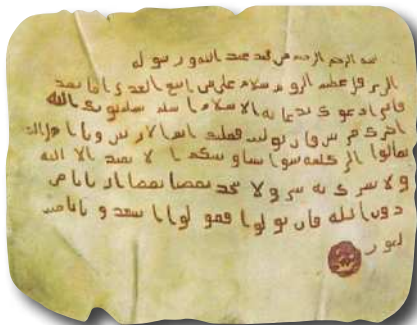 بسم الله الرحمن الرحيم من محمد عبد الله و رسوله
الى هرقل عظيم الروم سلام على من اتبع الهدى اما بعد
فانى ادعوك بدعاية الاسلام اسلم تسلم يوتك الله
اجرك مرتين فان توليت فعليك اثم الاريسين ويا اهل الك
تعالوا الى كلمة سوا بيننا وبينكم ا لا نعبد الا الله
ولا نشرك به شى ولا يتخذ بعضنا بعضا اربابا من
دون الله فان تولوا فقولوا اشهدو بانا مس
لمون